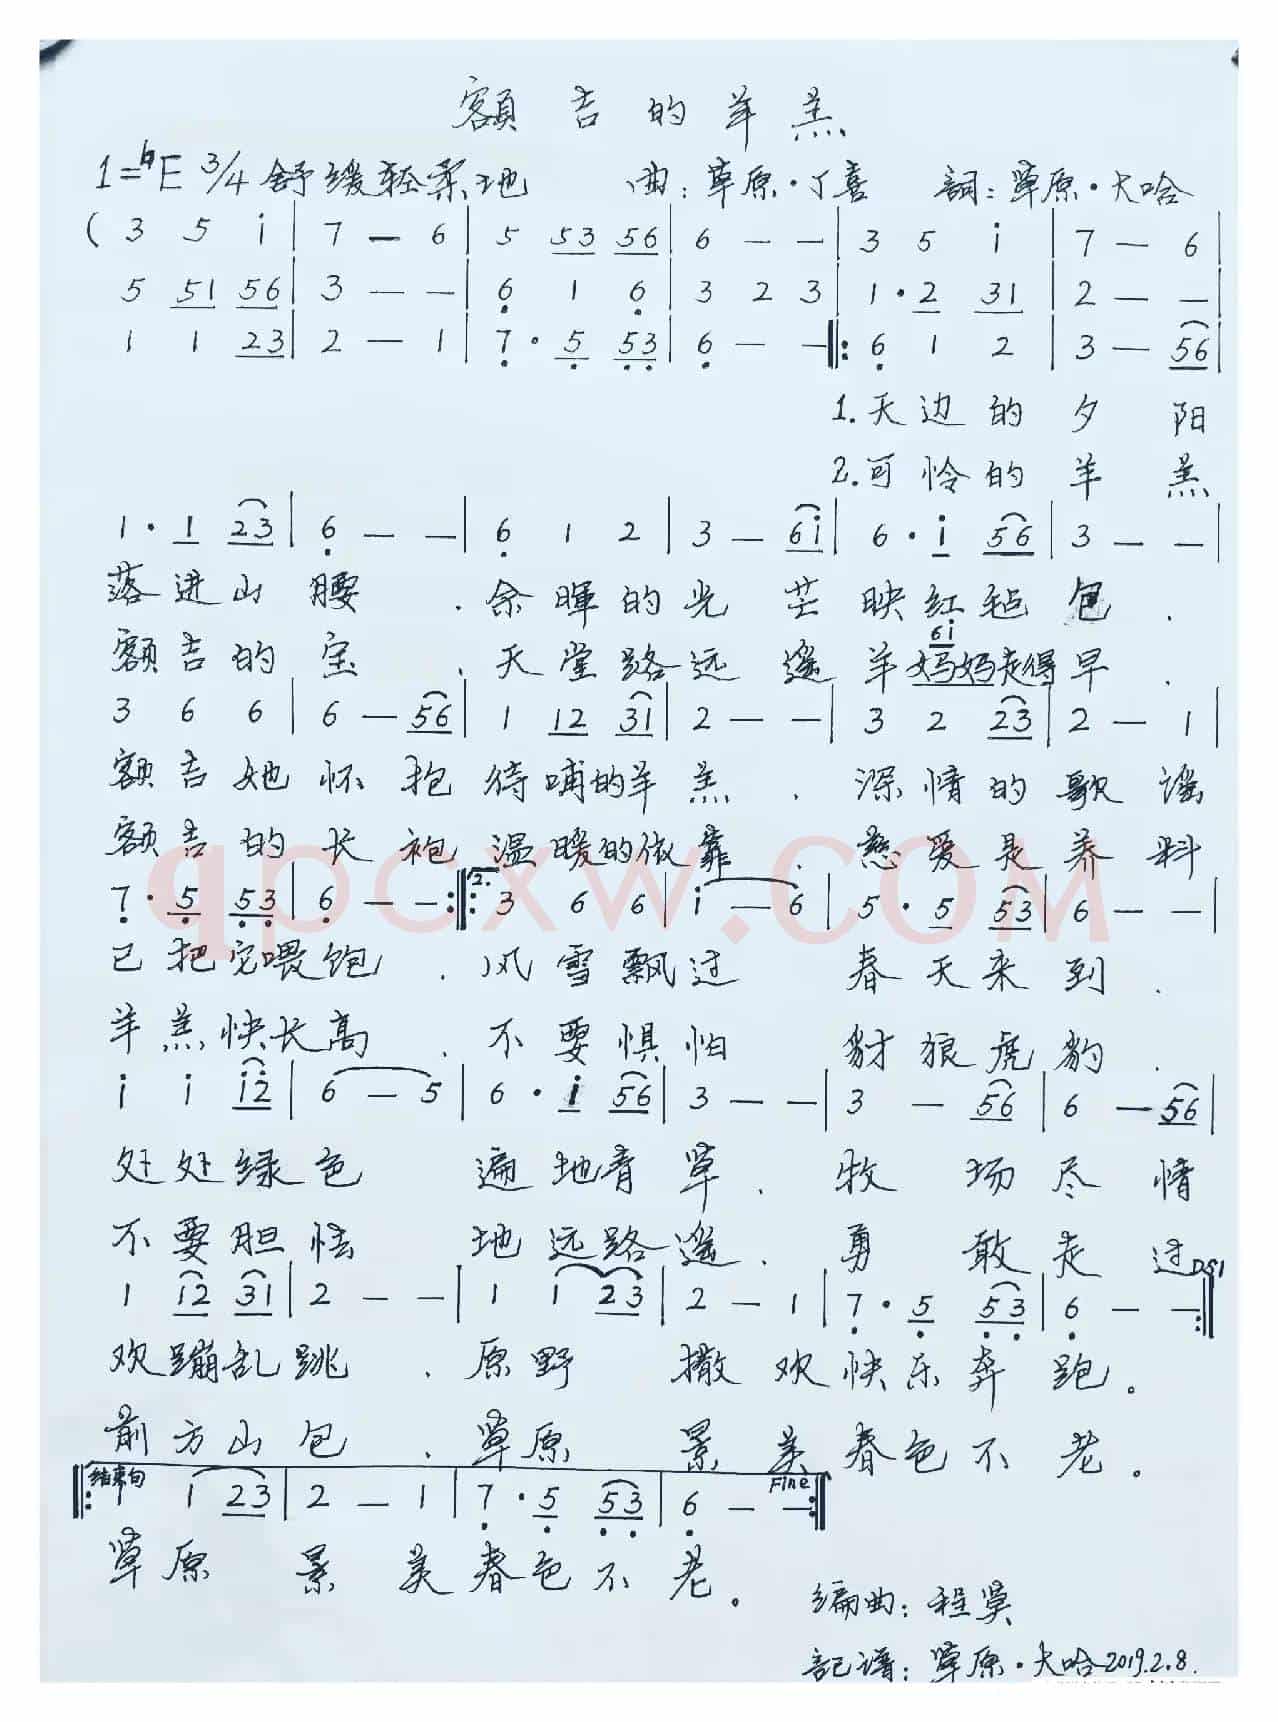 額吉的羊羔
1=♭E 3/4 舒缓轻柔地 曲:草原·丁喜 詞:草原·大哈
( 3 5 i | 7 — 6 | 5 53 56 | 6 — — | 3 5 i | 7 — 6 |
5 51 56 | 3 — — | 6 1 6 | 3 2 3 | 1·2 31 | 2 — — |
1 1 23 | 2 — 1 | 7·5 53 | 6 — — ‖: 6 1 2 | 3 — 56 |
1.天边的夕阳
2.可怜的羊羔
1·1 23 | 6 — — | 6 1 2 | 3 — 6i | 6·i 56 | 3 — — |
落进山腰.余暉的光芒映红毡包.
6i
额吉的宝.天堂路远遥羊妈妈走得早.
3 6 6 | 6 — 56 | 1 12 31 | 2 — — | 3 2 23 | 2 — 1 |
额吉她怀抱待哺的羊羔.深情的歌谣
额吉的长袍温暖的依靠.慈爱是养料
qpcxw.com
7·5 53 | 6 — — :‖: 2. 3 6 6 | i — 6 | 5·5 53 | 6 — — |
已把它喂饱.风雪飘过 春天来到.
羊羔快长高.不要惧怕 豺狼虎豹.
i i i2 | 6 — 5 | 6·i 56 | 3 — — | 3 — 56 | 6 — 56 |
处处绿色 遍地青草.牧场尽情
不要胆怯 地远路遥.勇敢走过
D.S1
1 12 31 | 2 — — | 1 1 23 | 2 — 1 | 7·5 53 | 6 — — :‖
欢蹦乱跳.原野 撒欢快乐奔跑。
前方山包.草原 景美春色不老。
结束句 Fine
‖: 1 1 23 | 2 — 1 | 7·5 53 | 6 — — :‖
草原 景美春色不老。
编曲:程昊
記谱:草原·大哈2019.2.8.